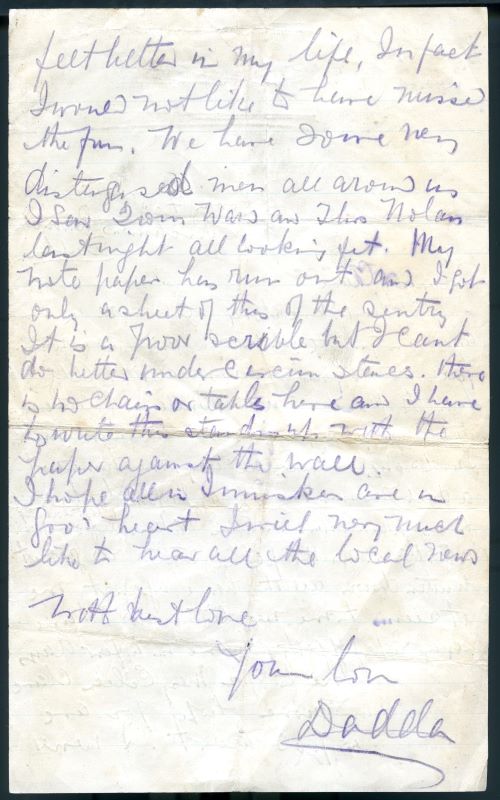 felt better in my life, In fact
I would not like to have missed
the fun. We have some very
distinguised men all around us
I saw Tom Ward and Thos Nolan
last night all looking fit. My
note paper has run out and I got
only a sheet of this of the sentry
It is a poor scrible but I cant
do better under circumstances. there
is no chairs or tables here and I have
to write this standing up with the
paper against the wall.
I hope all in are in
good heart I will very much
like to hear all the local news
With best love
Your
Dadda